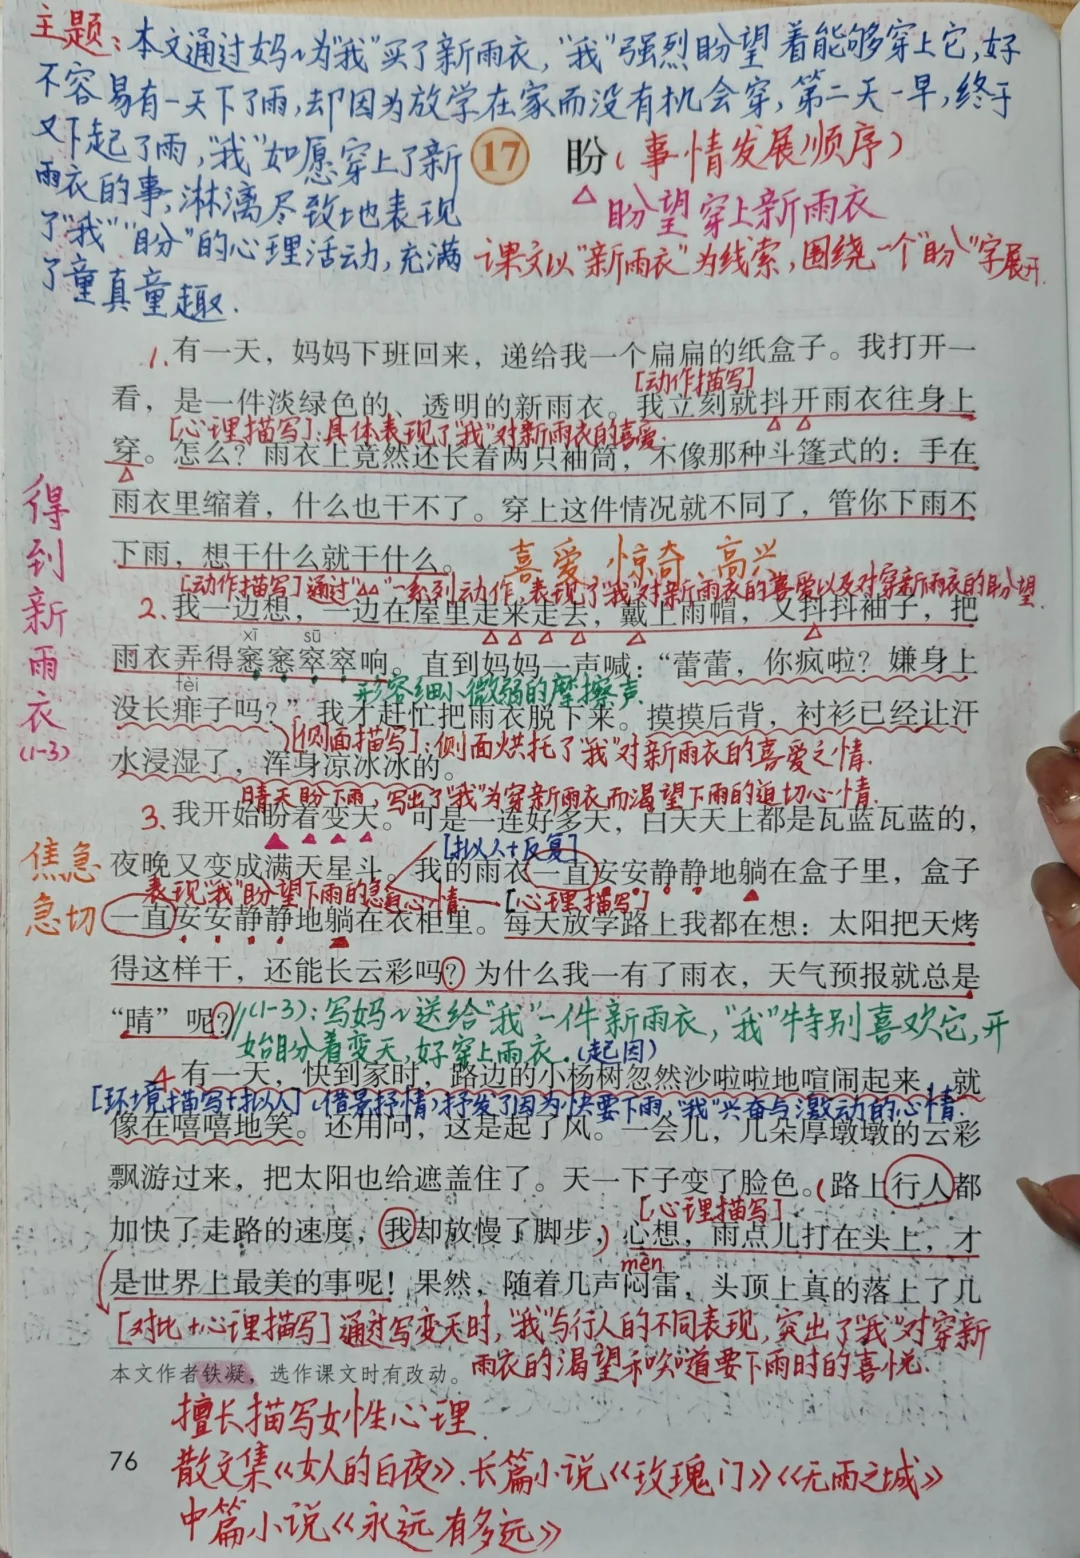 主题:本文通过妈妈为"我"买了新雨衣,"我"强烈盼望着能够穿上它,好
不容易有一天下了雨,却因为放学在家而没有机会穿,第二天一早,终于
又下起了雨,"我"如愿穿上了新
雨衣的事,淋漓尽致地表现
了"我""盼"的心理活动,充满
了童真童趣.
17 盼(事情发展顺序)
盼望穿上新雨衣
课文以"新雨衣"为线索,围绕一个"盼"字展开.
1.有一天,妈妈下班回来,递给我一个扁扁的纸盒子。我打开一
[动作描写]
看,是一件淡绿色的、透明的新雨衣。我立刻就抖开雨衣往身上
[心理描写]:具体表现了"我"对新雨衣的喜爱.
穿。怎么?雨衣上竟然还长着两只袖筒,不像那种斗篷式的:手在
雨衣里缩着,什么也干不了。穿上这件情况就不同了,管你下雨不
下雨,想干什么就干什么。 喜爱、惊奇、高兴
[动作描写]通过"△△"一系列动作,表现了"我"对新雨衣的喜爱以及对穿新雨衣的盼望.
2.我一边想,一边在屋里走来走去,戴上雨帽,又抖抖袖子,把
xī sū
雨衣弄得窸窸窣窣响。直到妈妈一声喊:“蕾蕾,你疯啦?嫌身上
fèi
形容细小微弱的摩擦声.
没长痱子吗?”我才赶忙把雨衣脱下来。摸摸后背,衬衫已经让汗
[侧面描写]:侧面烘托了"我"对新雨衣的喜爱之情.
水浸湿了,浑身凉冰冰的。
晴天盼下雨,写出了"我"为穿新雨衣而渴望下雨的迫切心情.
3.我开始盼着变天。可是一连好多天,白天天上都是瓦蓝瓦蓝的,
[拟人+反复]
夜晚又变成满天星斗。我的雨衣一直安安静静地躺在盒子里,盒子
表现"我"盼望下雨的急迫心情.
[心理描写]
一直安安静静地躺在衣柜里。每天放学路上我都在想:太阳把天烤
得这样干,还能长云彩吗?为什么我一有了雨衣,天气预报就总是
“晴”呢?//(1-3):写妈妈送给"我"一件新雨衣,"我"特别喜欢它,开
始盼着变天,好穿上雨衣.(起因)
得到新雨衣
(1-3)
焦急
急切
4有一天,快到家时,路边的小杨树忽然沙啦啦地喧闹起来,就
[环境描写+拟人](借景抒情)抒发了因为快要下雨,"我"兴奋与激动的心情.
像在嘻嘻地笑。还用问,这是起了风。一会儿,几朵厚墩墩的云彩
飘游过来,把太阳也给遮盖住了。天一下子变了脸色。(路上行人都
[心理描写]
加快了走路的速度,我却放慢了脚步,)心想,雨点儿打在头上,才
mèn
是世界上最美的事呢!果然,随着几声闷雷,头顶上真的落上了几
[对比+心理描写]通过写变天时,"我"与行人的不同表现,突出了"我"对穿新
雨衣的渴望和知道要下雨时的喜悦.
本文作者铁凝,选作课文时有改动。
擅长描写女性心理.
76
散文集《女人的白夜》、长篇小说《玫瑰门》《无雨之城》
中篇小说《永远有多远》